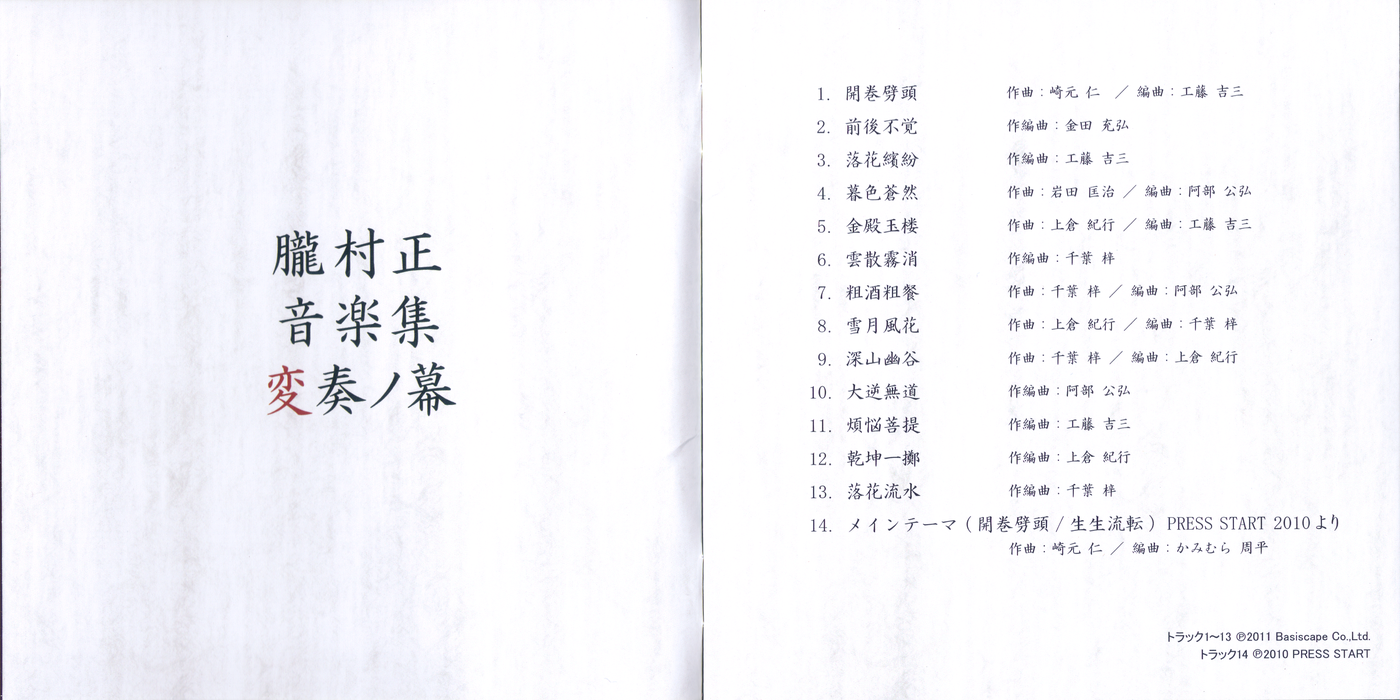 朧村正
音楽集
変奏ノ幕
1. 開巻劈頭 作曲：崎元 仁 ／ 編曲：工藤 吉三
2. 前後不覚 作編曲：金田 充弘
3. 落花繽紛 作編曲：工藤 吉三
4. 暮色蒼然 作曲：岩田 匡治 ／ 編曲：阿部 公弘
5. 金殿玉楼 作曲：上倉 紀行 ／ 編曲：工藤 吉三
6. 雲散霧消 作編曲：千葉 梓
7. 粗酒粗餐 作曲：千葉 梓 ／ 編曲：阿部 公弘
8. 雪月風花 作曲：上倉 紀行 ／ 編曲：千葉 梓
9. 深山幽谷 作曲：千葉 梓 ／ 編曲：上倉 紀行
10. 大逆無道 作編曲：阿部 公弘
11. 煩悩菩提 作編曲：工藤 吉三
12. 乾坤一擲 作編曲：上倉 紀行
13. 落花流水 作編曲：千葉 梓
14. メインテーマ（開巻劈頭 / 生生流転）PRESS START 2010より
作曲：崎元 仁 ／ 編曲：かみむら 周平
トラック1～13 ℗2011 Basiscape Co.,Ltd.
トラック14 ℗2010 PRESS START